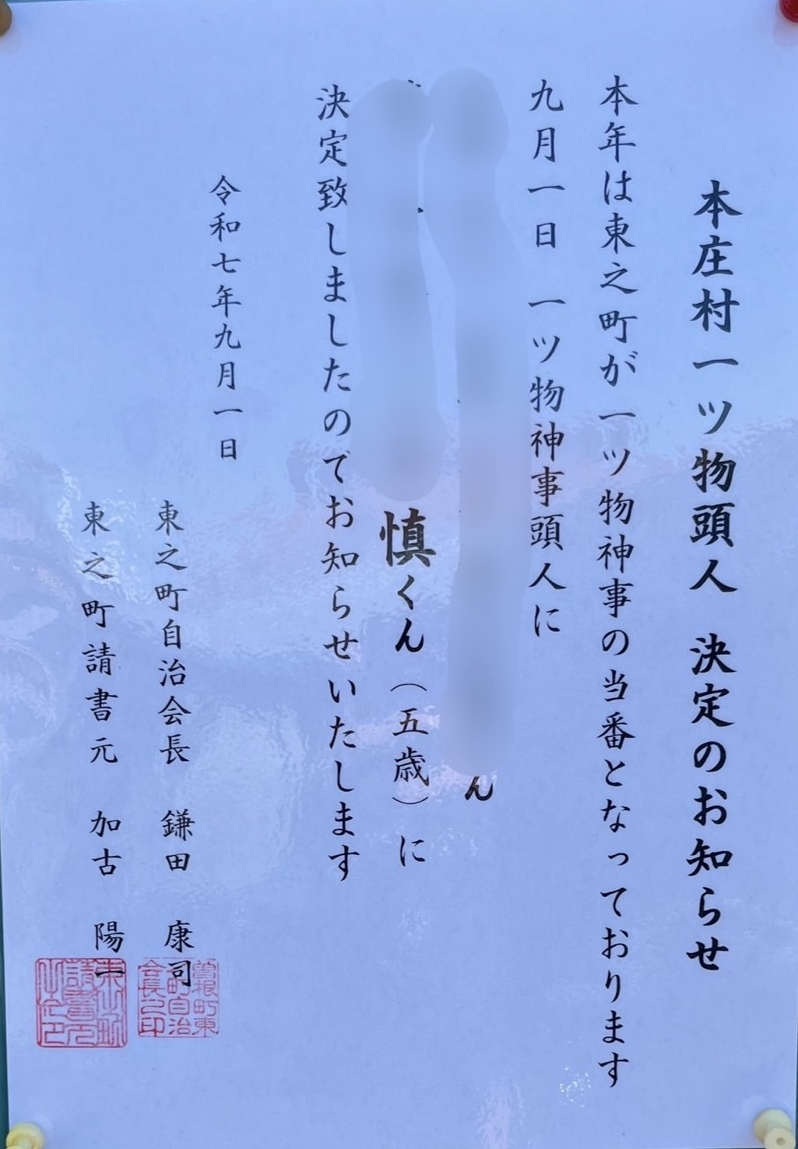 本庄村一ツ物頭人 決定のお知らせ
本年は東之町が一ツ物神事の当番となっております
九月一日 一ツ物神事頭人に
ん
慎くん（五歳）に
決定致しましたのでお知らせいたします
令和七年九月一日
東之町自治会長 鎌田 康司
東之町請書元 加古 陽一
曽根町東之町自治会長之印